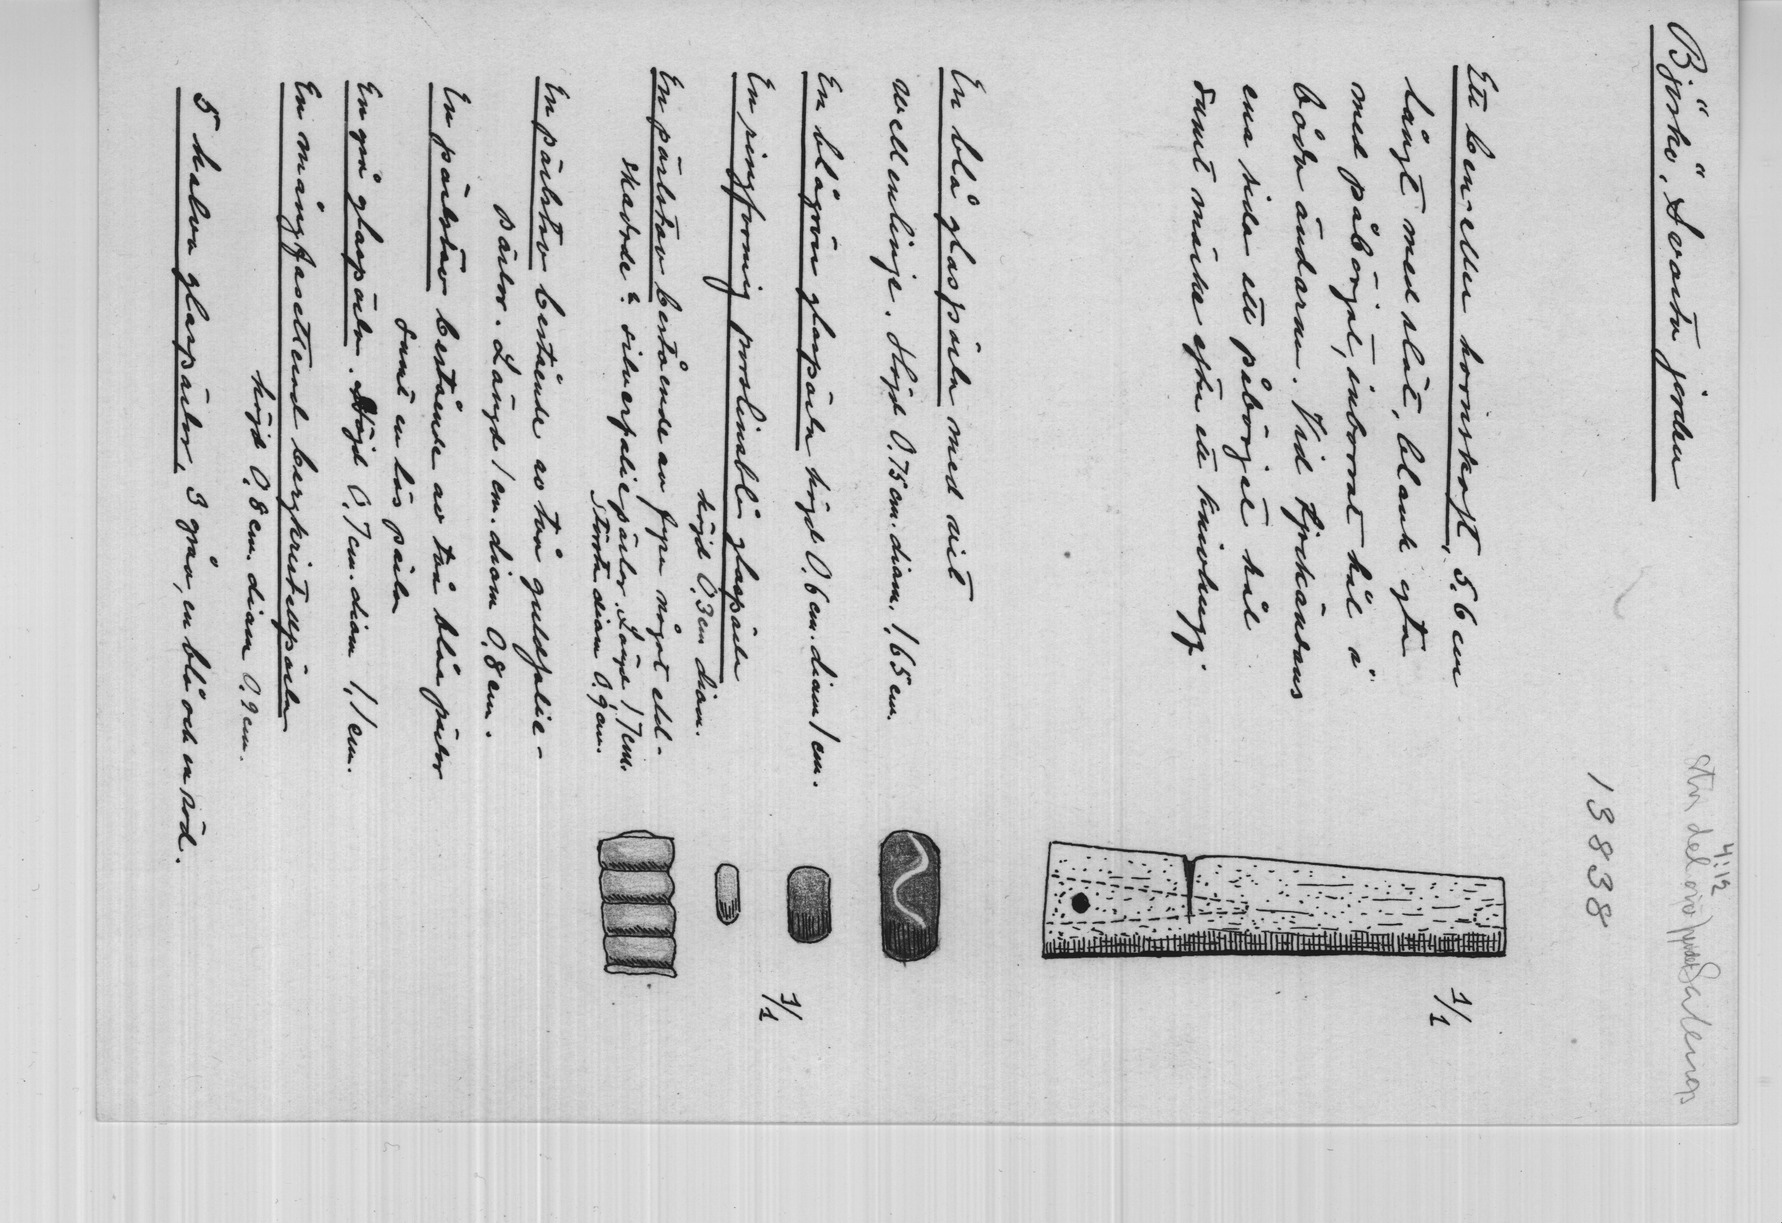 Björkö, Svarta jorden
4:12
13838
Ett ben- eller hornskaft, 5.6 cm
långt med slät, blank yta
med påbörjat, inborrat hål i
båda ändarna. Vid tjockändans
ena sida ett påbörjat hål
samt märke efter ett knivhugg.
1/1
En blå glaspärla med vit
wellenlinje. Höjd 0.75 cm. diam. 1,65 cm.
En blågrön glaspärla höjd 0.6 cm. diam 1 cm.
En ringformig porslinsblå glaspärla
höjd 0.3 cm diam.
1/1
En pärlstav bestående av fyra något eld-
skadade silverfoliepärlor. Längd 1,7 cm.
Största diam 0.9 cm.
En pärlstav bestående av två guldfolie-
pärlor. Längd 1 cm. diam 0,8 cm.
En pärlstav bestående av två blåa pärlor
samt en lös pärla
En grå glaspärla. Höjd 0,7 cm. diam 1,1 cm.
En mångfasetterad bergkristallpärla
höjd 0,8 cm. diam 0.9 cm.
5 halva glaspärlor, 3 gröna, en blå och en röd.